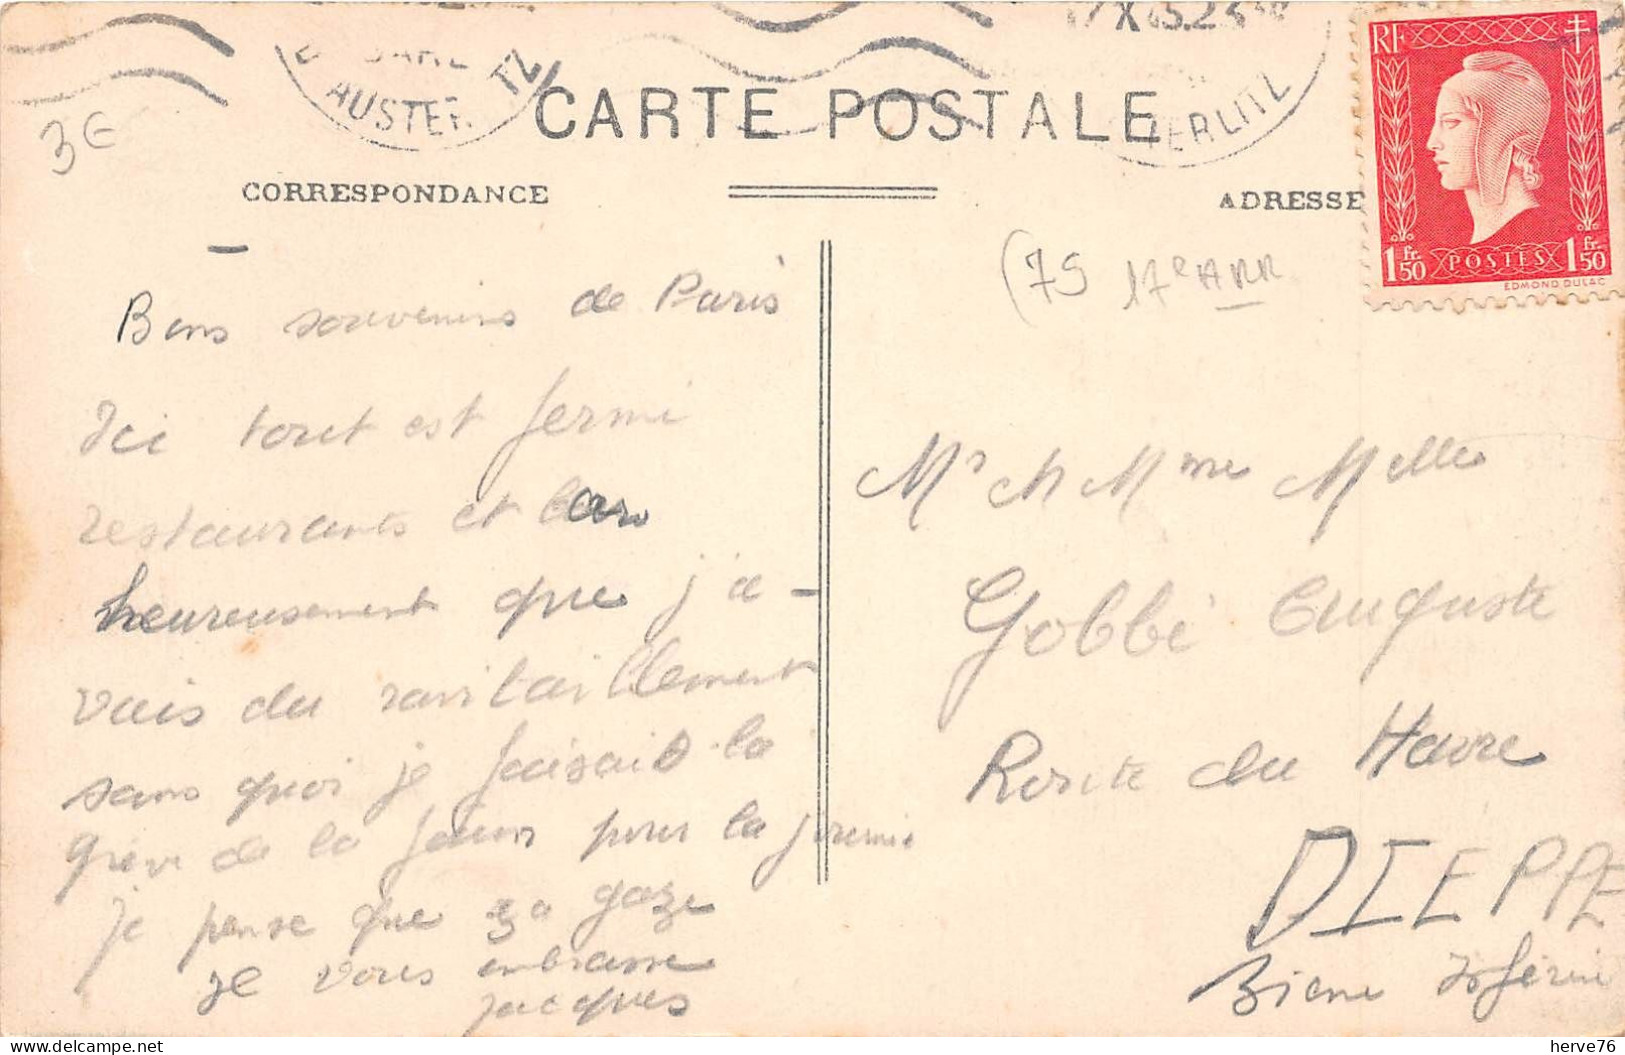 GARE
AUSTERLITZ
TERLITZ
3€
CARTE POSTALE
CORRESPONDANCE
ADRESSE
RF
1 fr. 50 POSTES 1 fr. 50
EDMOND DULAC
(75 17e ARR
Bons souvenirs de Paris
Ici tout est fermé
restaurants et bars
heureusement que j'a-
vais du ravitaillement
sans quoi je faisais la
grève de la faim pour la journée
Je pense que ça gaze
Je vous embrasse
Jacques
Mr et Mme Melle
Gobbé Auguste
Route du Havre
DIEPPE
Seine Inférie
Delcampe.net
herve76